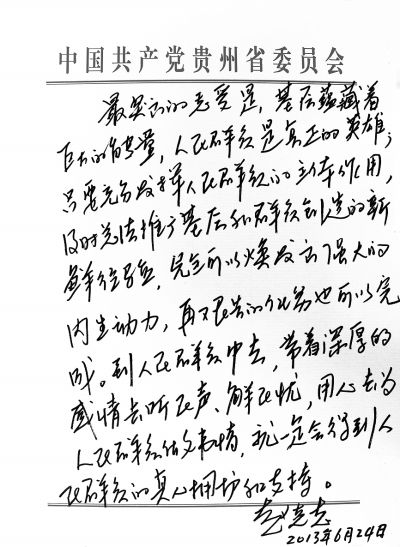 中国共产党贵州省委员会
最突出的感受是，基层蕴藏着
巨大的能量，人民群众是真正的英雄；
只要充分发挥人民群众的主体作用，
及时总结推广基层和群众创造的新
鲜经验，完全可以焕发出强大的
内生动力，再艰苦的任务也可以完
成。到人民群众中去，带着深厚的
感情去听民声、解民忧，用心去为
人民群众做实事情，就一定会得到人
民群众的真心拥护和支持。
赵克志
2013年6月24日